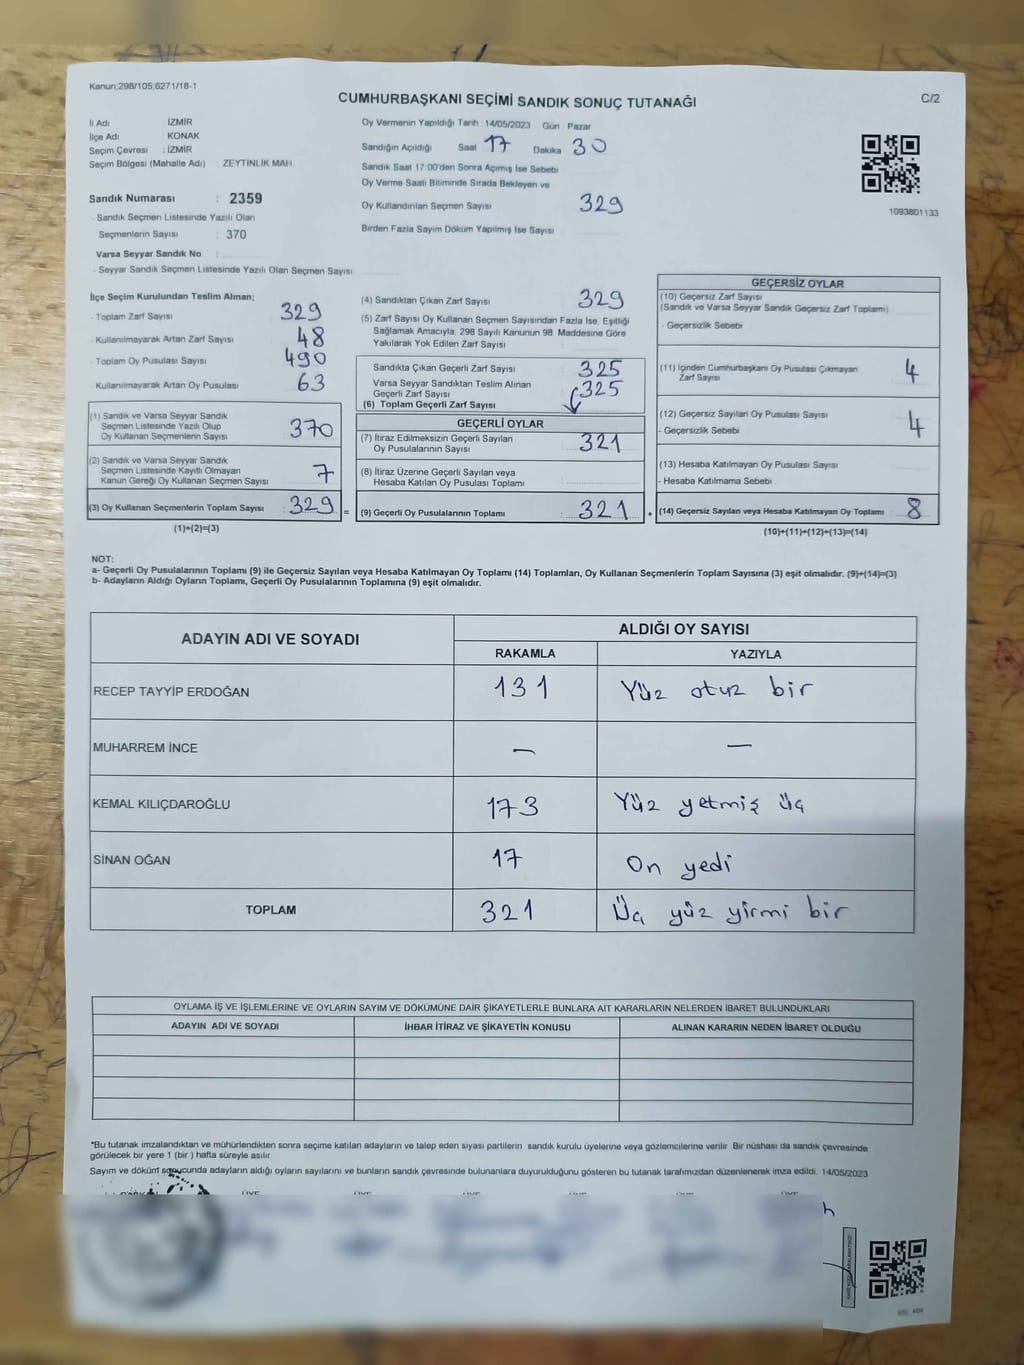 Kanun;298/105;6271/18-1
CUMHURBAŞKANI SEÇİMİ SANDIK SONUÇ TUTANAĞI
C/2
İli Adı : İZMİR
İlçe Adı : KONAK
Seçim Çevresi : İZMİR
Seçim Bölgesi (Mahalle Adı) : ZEYTİNLİK MAH.
Sandık Numarası : 2359
- Sandık Seçmen Listesinde Yazılı Olan
Seçmenlerin Sayısı : 370
Varsa Seyyar Sandık No :
- Seyyar Sandık Seçmen Listesinde Yazılı Olan Seçmen Sayısı
Oy Vermenin Yapıldığı Tarih 14/05/2023 Gün : Pazar
Sandığın Açıldığı Saat 17 Dakika 30
Sandık Saat 17:00'den Sonra Açılmış İse Sebebi
Oy Verme Saati Bitiminde Sırada Bekleyen ve
Oy Kullandırılan Seçmen Sayısı 329
Birden Fazla Sayım Döküm Yapılmış İse Sayısı
1093801133
İlçe Seçim Kurulundan Teslim Alınan;
- Toplam Zarf Sayısı 329
- Kullanılmayarak Artan Zarf Sayısı 48
- Toplam Oy Pusulası Sayısı 490
- Kullanılmayarak Artan Oy Pusulası 63
(1) Sandık ve Varsa Seyyar Sandık
Seçmen Listesinde Yazılı Olup
Oy Kullanan Seçmenlerin Sayısı 370
(2) Sandık ve Varsa Seyyar Sandık
Seçmen Listesinde Kayıtlı Olmayan
Kanun Gereği Oy Kullanan Seçmen Sayısı 7
(3) Oy Kullanan Seçmenlerin Toplam Sayısı : 329 =
(1)+(2)=(3)
(4) Sandıktan Çıkan Zarf Sayısı 329
(5) Zarf Sayısı Oy Kullanan Seçmen Sayısından Fazla İse, Eşitliği
Sağlamak Amacıyla, 298 Sayılı Kanunun 98. Maddesine Göre
Yakılarak Yok Edilen Zarf Sayısı
Sandıkta Çıkan Geçerli Zarf Sayısı 325
Varsa Seyyar Sandıktan Teslim Alınan
Geçerli Zarf Sayısı 325
(6) Toplam Geçerli Zarf Sayısı
GEÇERLİ OYLAR
(7) İtiraz Edilmeksizin Geçerli Sayılan
Oy Pusulalarının Sayısı 321
(8) İtiraz Üzerine Geçerli Sayılan veya
Hesaba Katılan Oy Pusulası Toplamı
(9) Geçerli Oy Pusulalarının Toplamı 321 +
GEÇERSİZ OYLAR
(10) Geçersiz Zarf Sayısı
(Sandık ve Varsa Seyyar Sandık Geçersiz Zarf Toplamı)
- Geçersizlik Sebebi
(11) İçinden Cumhurbaşkanı Oy Pusulası Çıkmayan
Zarf Sayısı 4
(12) Geçersiz Sayılan Oy Pusulası Sayısı 4
- Geçersizlik Sebebi
(13) Hesaba Katılmayan Oy Pusulası Sayısı
- Hesaba Katılmama Sebebi
(14) Geçersiz Sayılan veya Hesaba Katılmayan Oy Toplamı 8
(10)+(11)+(12)+(13)=(14)
NOT:
a- Geçerli Oy Pusulalarının Toplamı (9) ile Geçersiz Sayılan veya Hesaba Katılmayan Oy Toplamı (14) Toplamları, Oy Kullanan Seçmenlerin Toplam Sayısına (3) eşit olmalıdır. (9)+(14)=(3)
b- Adayların Aldığı Oyların Toplamı, Geçerli Oy Pusulalarının Toplamına (9) eşit olmalıdır.
ADAYIN ADI VE SOYADI
ALDIĞI OY SAYISI
RAKAMLA YAZIYLA
RECEP TAYYİP ERDOĞAN 131 Yüz otuz bir
MUHARREM İNCE — —
KEMAL KILIÇDAROĞLU 173 Yüz yetmiş üç
SİNAN OĞAN 17 On yedi
TOPLAM 321 Üç yüz yirmi bir
OYLAMA İŞ VE İŞLEMLERİNE VE OYLARIN SAYIM VE DÖKÜMÜNE DAİR ŞİKAYETLERLE BUNLARA AİT KARARLARIN NELERDEN İBARET BULUNDUKLARI
ADAYIN ADI VE SOYADI İHBAR İTİRAZ VE ŞİKAYETİN KONUSU ALINAN KARARIN NEDEN İBARET OLDUĞU
*Bu tutanak imzalandıktan ve mühürlendikten sonra seçime katılan adayların ve talep eden siyasi partilerin sandık kurulu üyelerine veya gözlemcilerine verilir. Bir nüshası da sandık çevresinde
görülecek bir yere 1 (bir ) hafta süreyle asılır.
Sayım ve döküm sonucunda adayların aldığı oyların sayılarını ve bunların sandık çevresinde bulunanlara duyurulduğunu gösteren bu tutanak tarafımızdan düzenlenerek imza edildi. 14/05/2023
ÜYE ÜYE ÜYE ÜYE ÜYE ÜYE